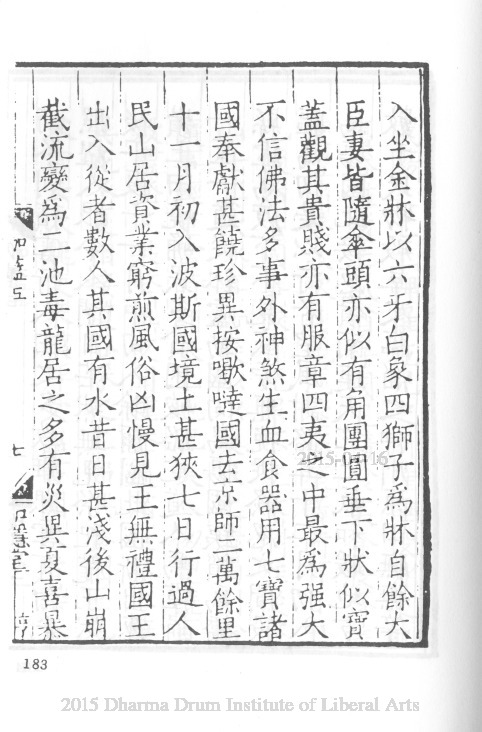 入坐金牀以六牙白象四獅子爲牀自餘大
臣妻皆隨傘頭亦似有角團圓垂下狀似寳
蓋觀其貴賤亦有服章四夷之中最爲强大
不信佛法多事外神煞生血食器用七寳諸
國奉獻甚饒珍異按嚈噠國去京師二萬餘里
十一月初入波斯國境土甚狹七日行過人
民山居資業窮煎風俗凶慢見王無禮國王
出入從者數人其國有水昔日甚淺後山崩
截流變爲二池毒龍居之多有災異夏喜暴
七
183
2015-04-16
2015 Dharma Drum Institute of Liberal Arts